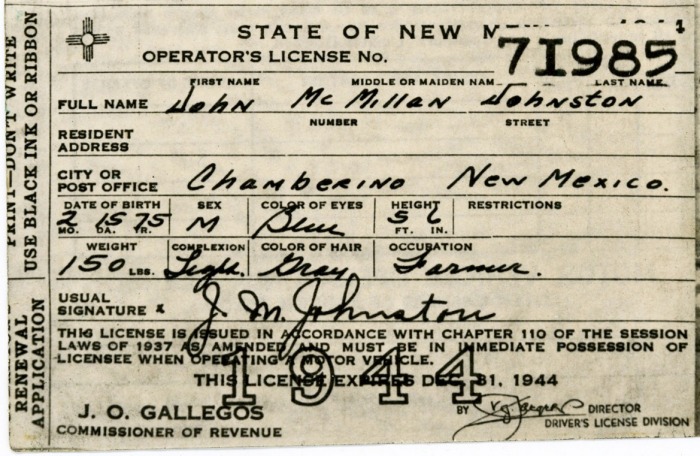 PRINT—DON'T WRITE
USE BLACK INK OR RIBBON
RENEWAL
APPLICATION
STATE OF NEW
OPERATOR'S LICENSE No. 71985
FIRST NAME MIDDLE OR MAIDEN NAM LAST NAME
FULL NAME John McMillan Johnston
NUMBER STREET
RESIDENT
ADDRESS
CITY OR
POST OFFICE Chamberino New Mexico.
DATE OF BIRTH SEX COLOR OF EYES HEIGHT RESTRICTIONS
2 15 75 M Blue 5 6
MO. DA. YR. FT. IN.
WEIGHT COMPLEXION COLOR OF HAIR OCCUPATION
150 LBS. Light. Gray Farmer.
USUAL
SIGNATURE x J. M. Johnston
THIS LICENSE IS ISSUED IN ACCORDANCE WITH CHAPTER 110 OF THE SESSION
LAWS OF 1937 AS AMENDED AND MUST BE IN IMMEDIATE POSSESSION OF
LICENSEE WHEN OPERATING A MOTOR VEHICLE.
THIS LICENSE EXPIRES DEC. 31, 1944
1944
J. O. GALLEGOS
COMMISSIONER OF REVENUE
BY DIRECTOR
DRIVER'S LICENSE DIVISION